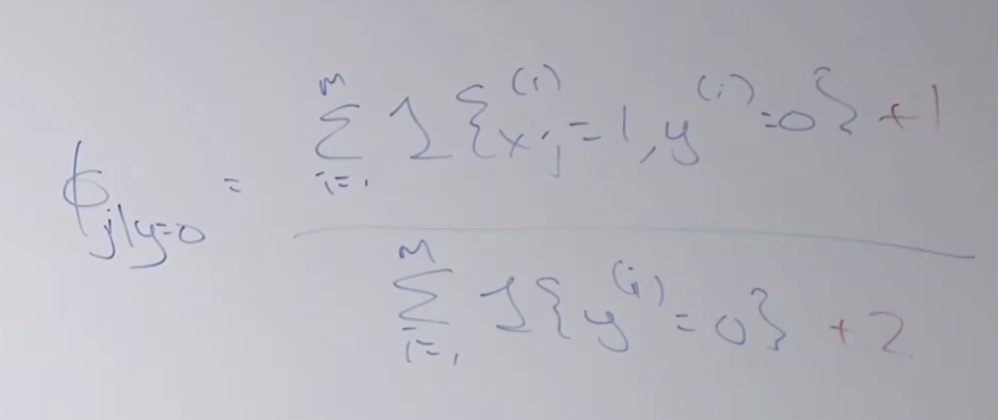 ϕ_{j|y=0} = \frac{\sum_{i=1}^{m} 1\{x_j^{(i)}=1, y^{(i)}=0\} +1}{\sum_{i=1}^{m} 1\{y^{(i)}=0\} +2}